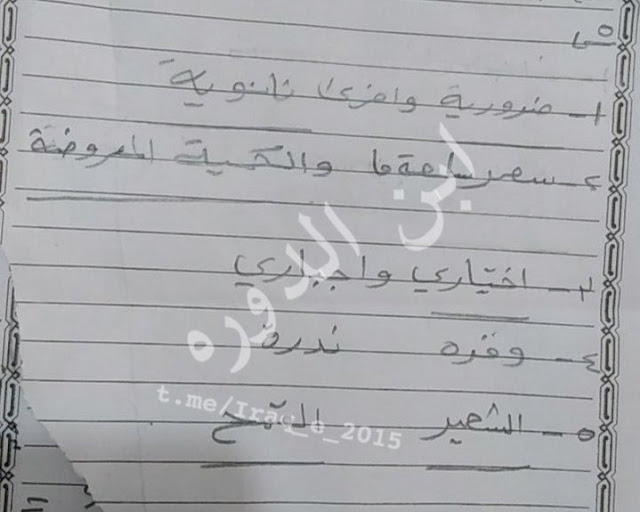 س٥
١- ضرورية واخرى ثانوية
٢- سعر سلعة ما والكمية المعروضة
٣- اختياري واجباري
٤- وفره ندرة
٥- الشعير القمح
ابن الدوره
t.me/Iraq_6_2015